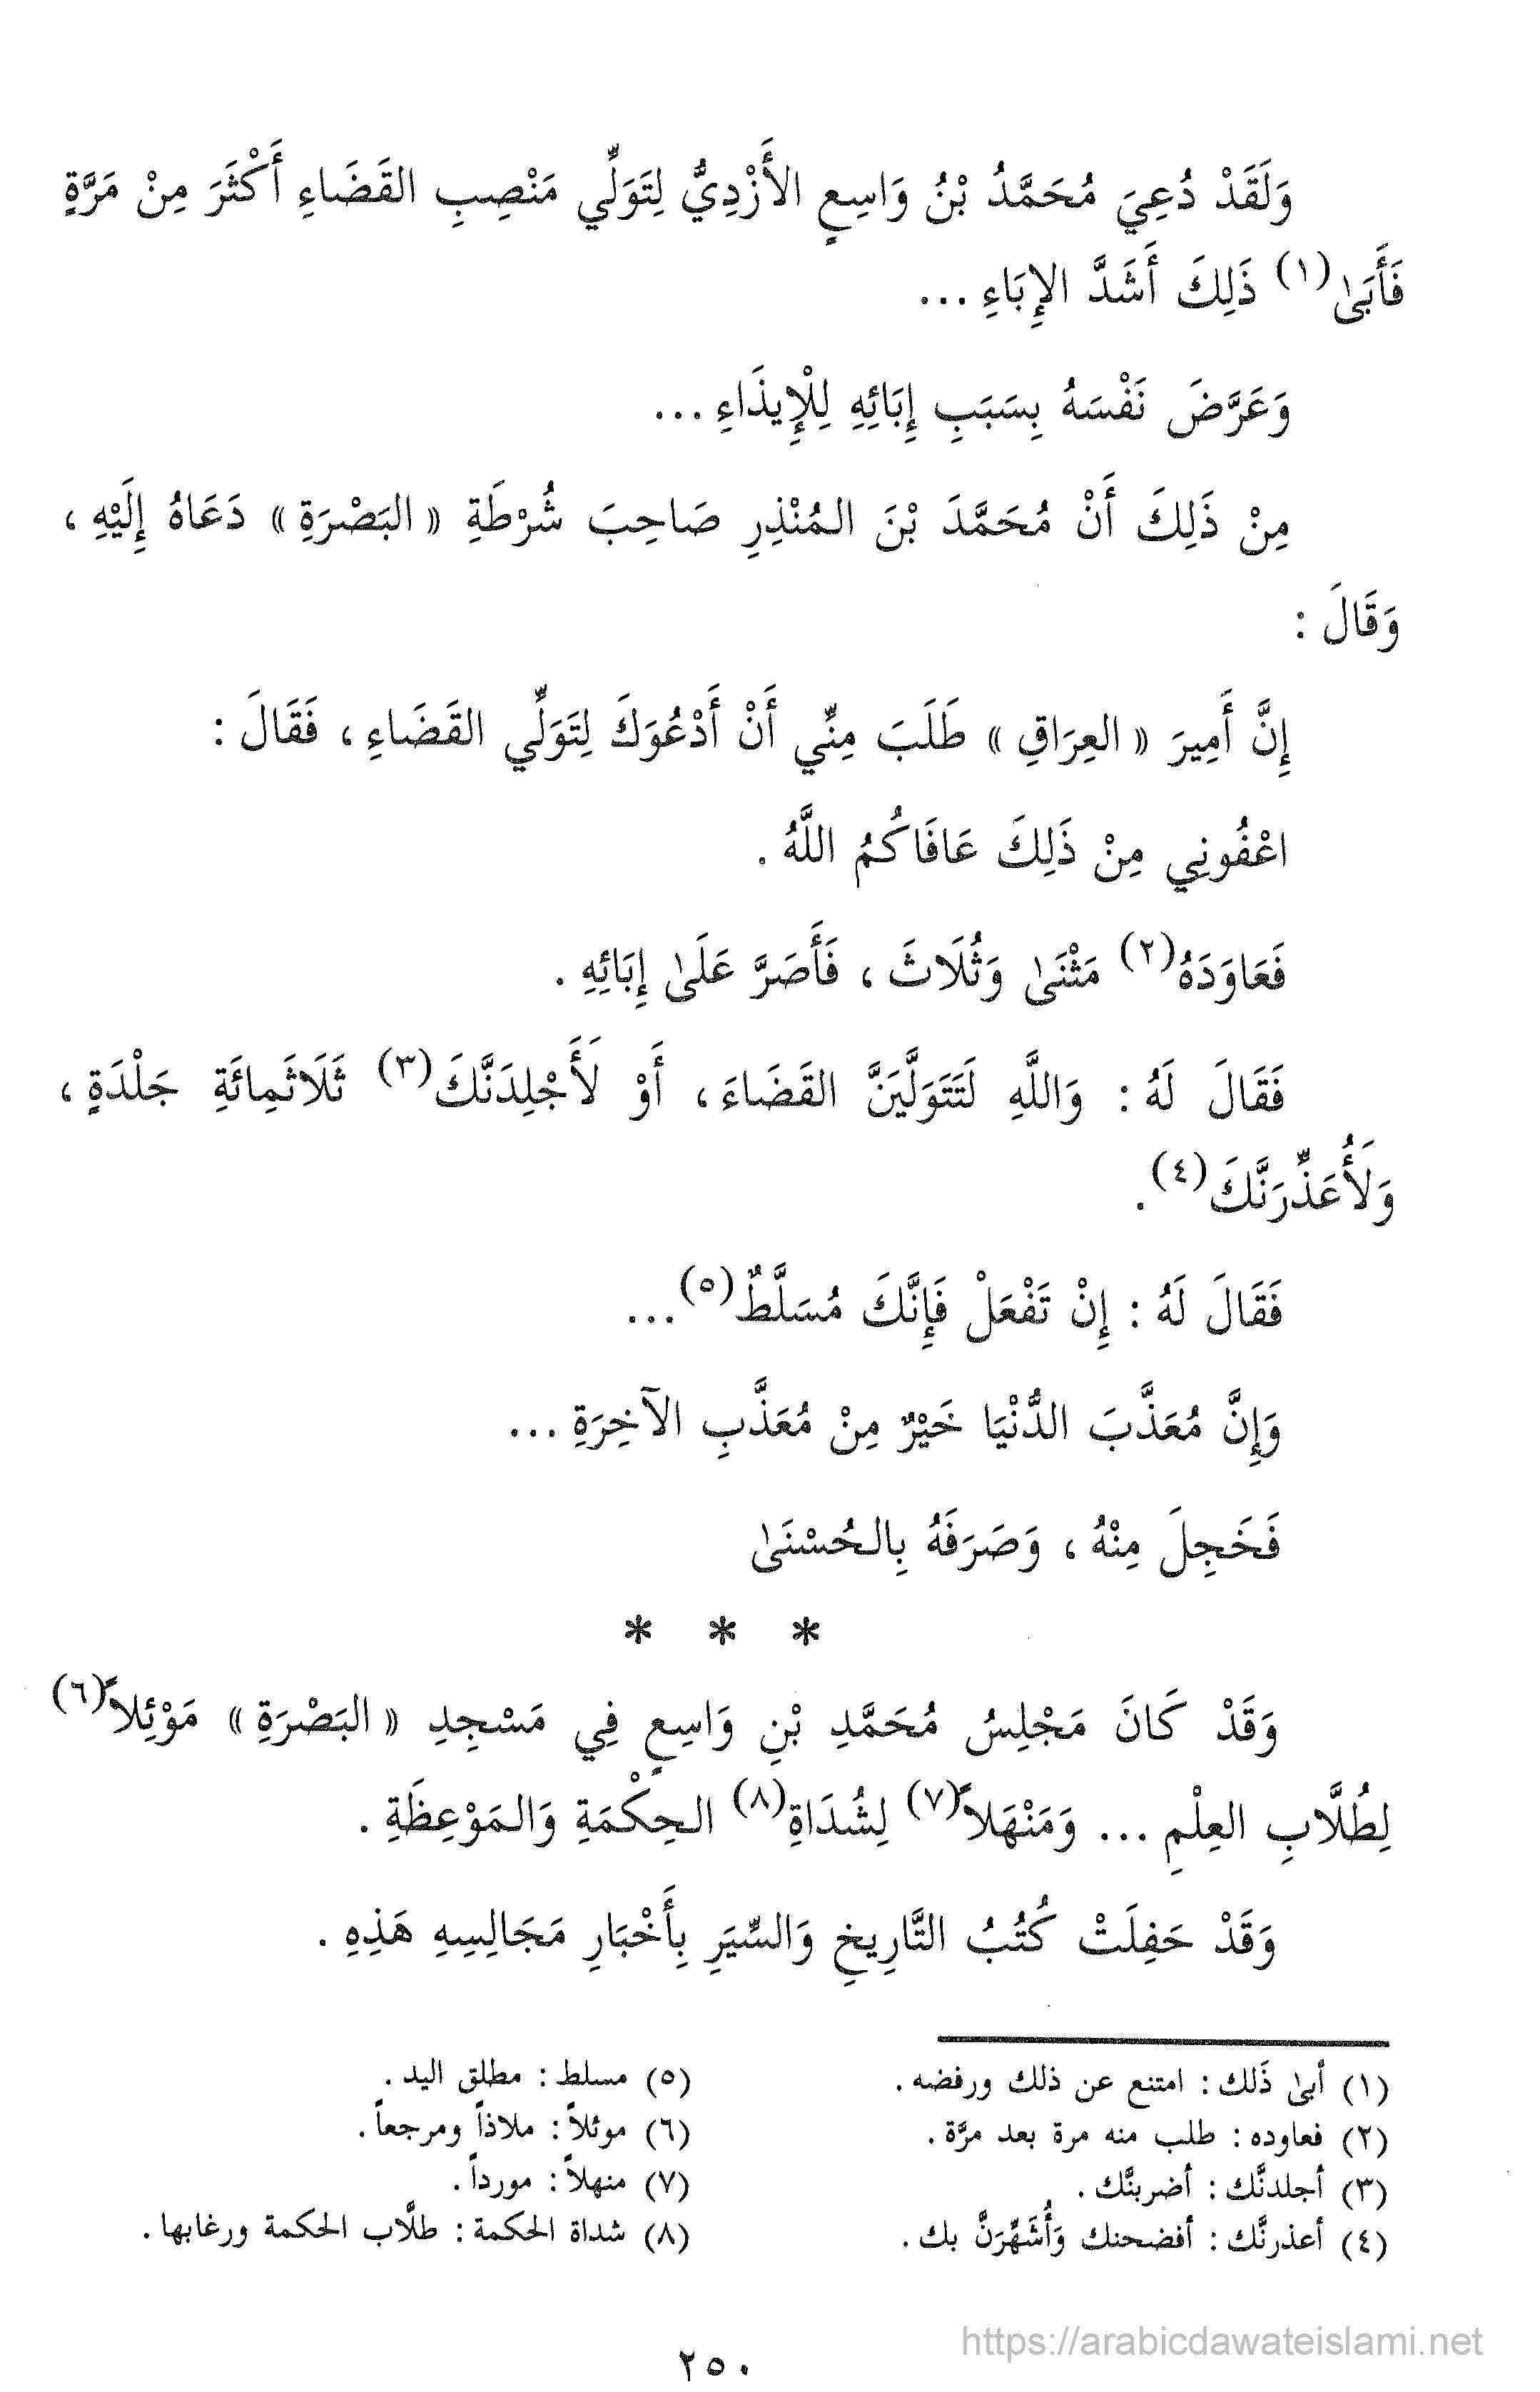 وَلَقَدْ دُعِيَ مُحَمَّدُ بْنُ وَاسِعٍ الأَزْدِيُّ لِتَوَلِّي مَنْصِبِ القَضَاءِ أَكْثَرَ مِنْ مَرَّةٍ
فَأَبَىٰ(١) ذَلِكَ أَشَدَّ الإِبَاءِ ...
وَعَرَّضَ نَفْسَهُ بِسَبَبِ إِبَائِهِ لِلْإِيذَاءِ ...
مِنْ ذَلِكَ أَنْ مُحَمَّدَ بْنَ المُنْذِرِ صَاحِبَ شُرْطَةِ « البَصْرَةِ » دَعَاهُ إِلَيْهِ ،
وَقَالَ :
إِنَّ أَمِيرَ « العِرَاقِ » طَلَبَ مِنِّي أَنْ أَدْعُوَكَ لِتَوَلِّي القَضَاءِ ، فَقَالَ :
اعْفُونِي مِنْ ذَلِكَ عَافَاكُمُ اللَّهُ .
فَعَاوَدَهُ(٢) مَثْنَىٰ وَثُلَاثَ ، فَأَصَرَّ عَلَىٰ إِبَائِهِ .
فَقَالَ لَهُ : وَاللَّهِ لَتَتَوَلَّيَنَّ القَضَاءَ ، أَوْ لَأَجْلِدَنَّكَ(٣) ثَلَاثَمِائَةِ جَلْدَةٍ ،
وَلَأُعَذِّرَنَّكَ(٤) .
فَقَالَ لَهُ : إِنْ تَفْعَلْ فَإِنَّكَ مُسَلَّطٌ(٥) ...
وَإِنَّ مُعَذَّبَ الدُّنْيَا خَيْرٌ مِنْ مُعَذَّبِ الآخِرَةِ ...
فَخَجِلَ مِنْهُ ، وَصَرَفَهُ بِالحُسْنَىٰ
* * *
وَقَدْ كَانَ مَجْلِسُ مُحَمَّدِ بْنِ وَاسِعٍ فِي مَسْجِدِ « البَصْرَةِ » مَوْئِلاً(٦)
لِطُلَّابِ العِلْمِ ... وَمَنْهَلاً(٧) لِشُدَاةِ(٨) الحِكْمَةِ وَالمَوْعِظَةِ .
وَقَدْ حَفِلَتْ كُتُبُ التَّارِيخِ وَالسِّيَرِ بِأَخْبَارِ مَجَالِسِهِ هَذِهِ .
(١) أبىٰ ذَلك : امتنع عن ذلك ورفضه .
(٢) فعاوده : طلب منه مرة بعد مرَّة .
(٣) أجلدنَّك : أضربنَّك .
(٤) أعذرنَّك : أفضحنك وَأُشَهِّرَنَّ بك .
(٥) مسلط : مطلق اليد .
(٦) موئلاً : ملاذاً ومرجعاً .
(٧) منهلاً : مورداً .
(٨) شداة الحكمة : طلَّاب الحكمة ورغابها .
https://arabicdawateislami.net
٢٥٠